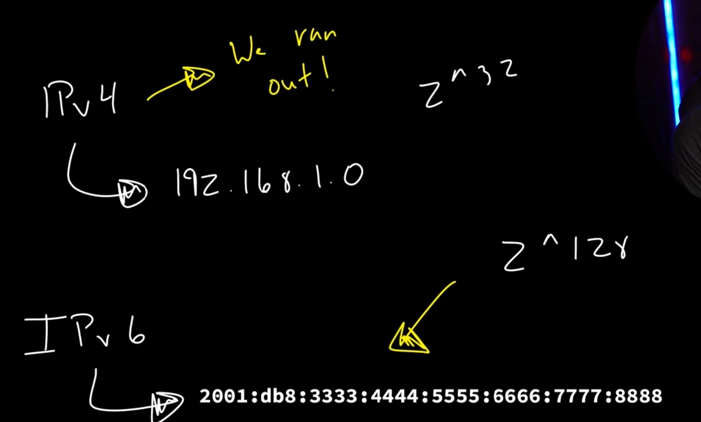 We ran
out!
IPv4
2^32
192.168.1.0
2^128
IPv6
2001:db8:3333:4444:5555:6666:7777:8888